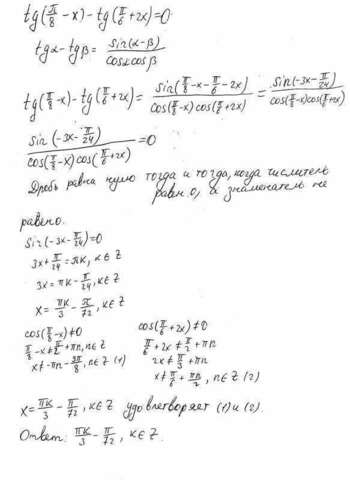 tg(π/8 - x) - tg(π/6 + 2x) = 0
tgα - tgβ = sin(α-β)/cosα cosβ
tg(π/8 - x) - tg(π/6 + 2x) = sin(π/8 - x - π/6 - 2x)/cos(π/8 - x) cos(π/6 + 2x) = sin(-3x - π/24)/cos(π/8 - x) cos(π/6 + 2x)
sin(-3x - π/24)/cos(π/8 - x) cos(π/6 + 2x) = 0
Дробь равна нулю тогда и тогда, когда числитель
равен 0, а знаменатель не
равено.
sin(-3x - π/24) = 0
3x + π/24 = πk, k∈Z
3x = πk - π/24, k∈Z
x = πk/3 - π/72, k∈Z
cos(π/8 - x) ≠ 0
π/8 - x ≠ π/2 + πn, n∈Z
x ≠ -πn - 3π/8, n∈Z (1)
cos(π/6 + 2x) ≠ 0
π/6 + 2x ≠ π/2 + πn
2x ≠ π/3 + πn
x ≠ π/6 + πn/2, n∈Z (2)
x = πk/3 - π/72, k∈Z удовлетворяет (1) и (2).
Ответ: πk/3 - π/72, k∈Z.